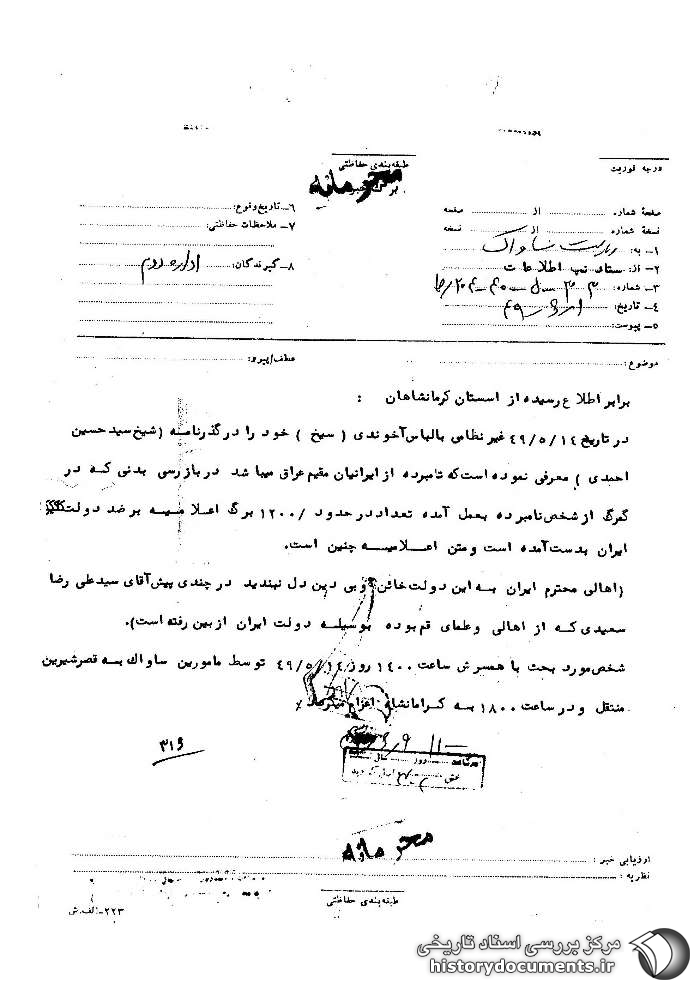 طبقه‌بندی حفاظتی
محرمانه
درجه فوریت
صفحهٔ شماره از صفحه
نسخهٔ شماره از نسخه
۱ـ به: ریاست ساواک
۲ـ از: ستاد تیپ اطلاعات
۳ـ شماره:
۴ـ تاریخ:
۵ـ پیوست:
۶ـ تاریخ وقوع:
۷ـ ملاحظات حفاظتی:
۸ـ گیرندگان: اداره دوم
موضوع: عطف/پیرو:
برابر اطلاع رسیده از استان کرمانشاهان :
در تاریخ ۴۹/۵/۱۴ غیر نظامی بالباس آخوندی ( سیخ ) خود را در گذرنامه (شیخ سید حسین
احمدی ) معرفی نموده است که نامبرده از ایرانیان مقیم عراق میباشد در بازرسی بدنی که در
گمرک از شخص نامبرده بعمل آمده تعداد در حدود /۱۲۰۰ برگ اعلامیه بر ضد دولت
ایران بدست آمده است و متن اعلامیه چنین است.
(اهالی محترم ایران به این دولت خائن و بی دین دل نبندید در چندی پیش آقای سید علی رضا
سعیدی که از اهالی و علمای قم بوده بوسیله دولت ایران از بین رفته است).
شخص مورد بحث با همسرش ساعت ۱۴۰۰ روز ۴۹/۵/۱۴ توسط مامورین ساواک به قصرشیرین
منتقل و در ساعت ۱۸۰۰ به کرمانشاه اعزام میگردد
۳۱۶
محرمانه
ارزیابی خبر :
نظریه :
طبقه‌بندی حفاظتی
۲۲۳ـ الف.ش
مرکز بررسی اسناد تاریخی
historydocuments.ir